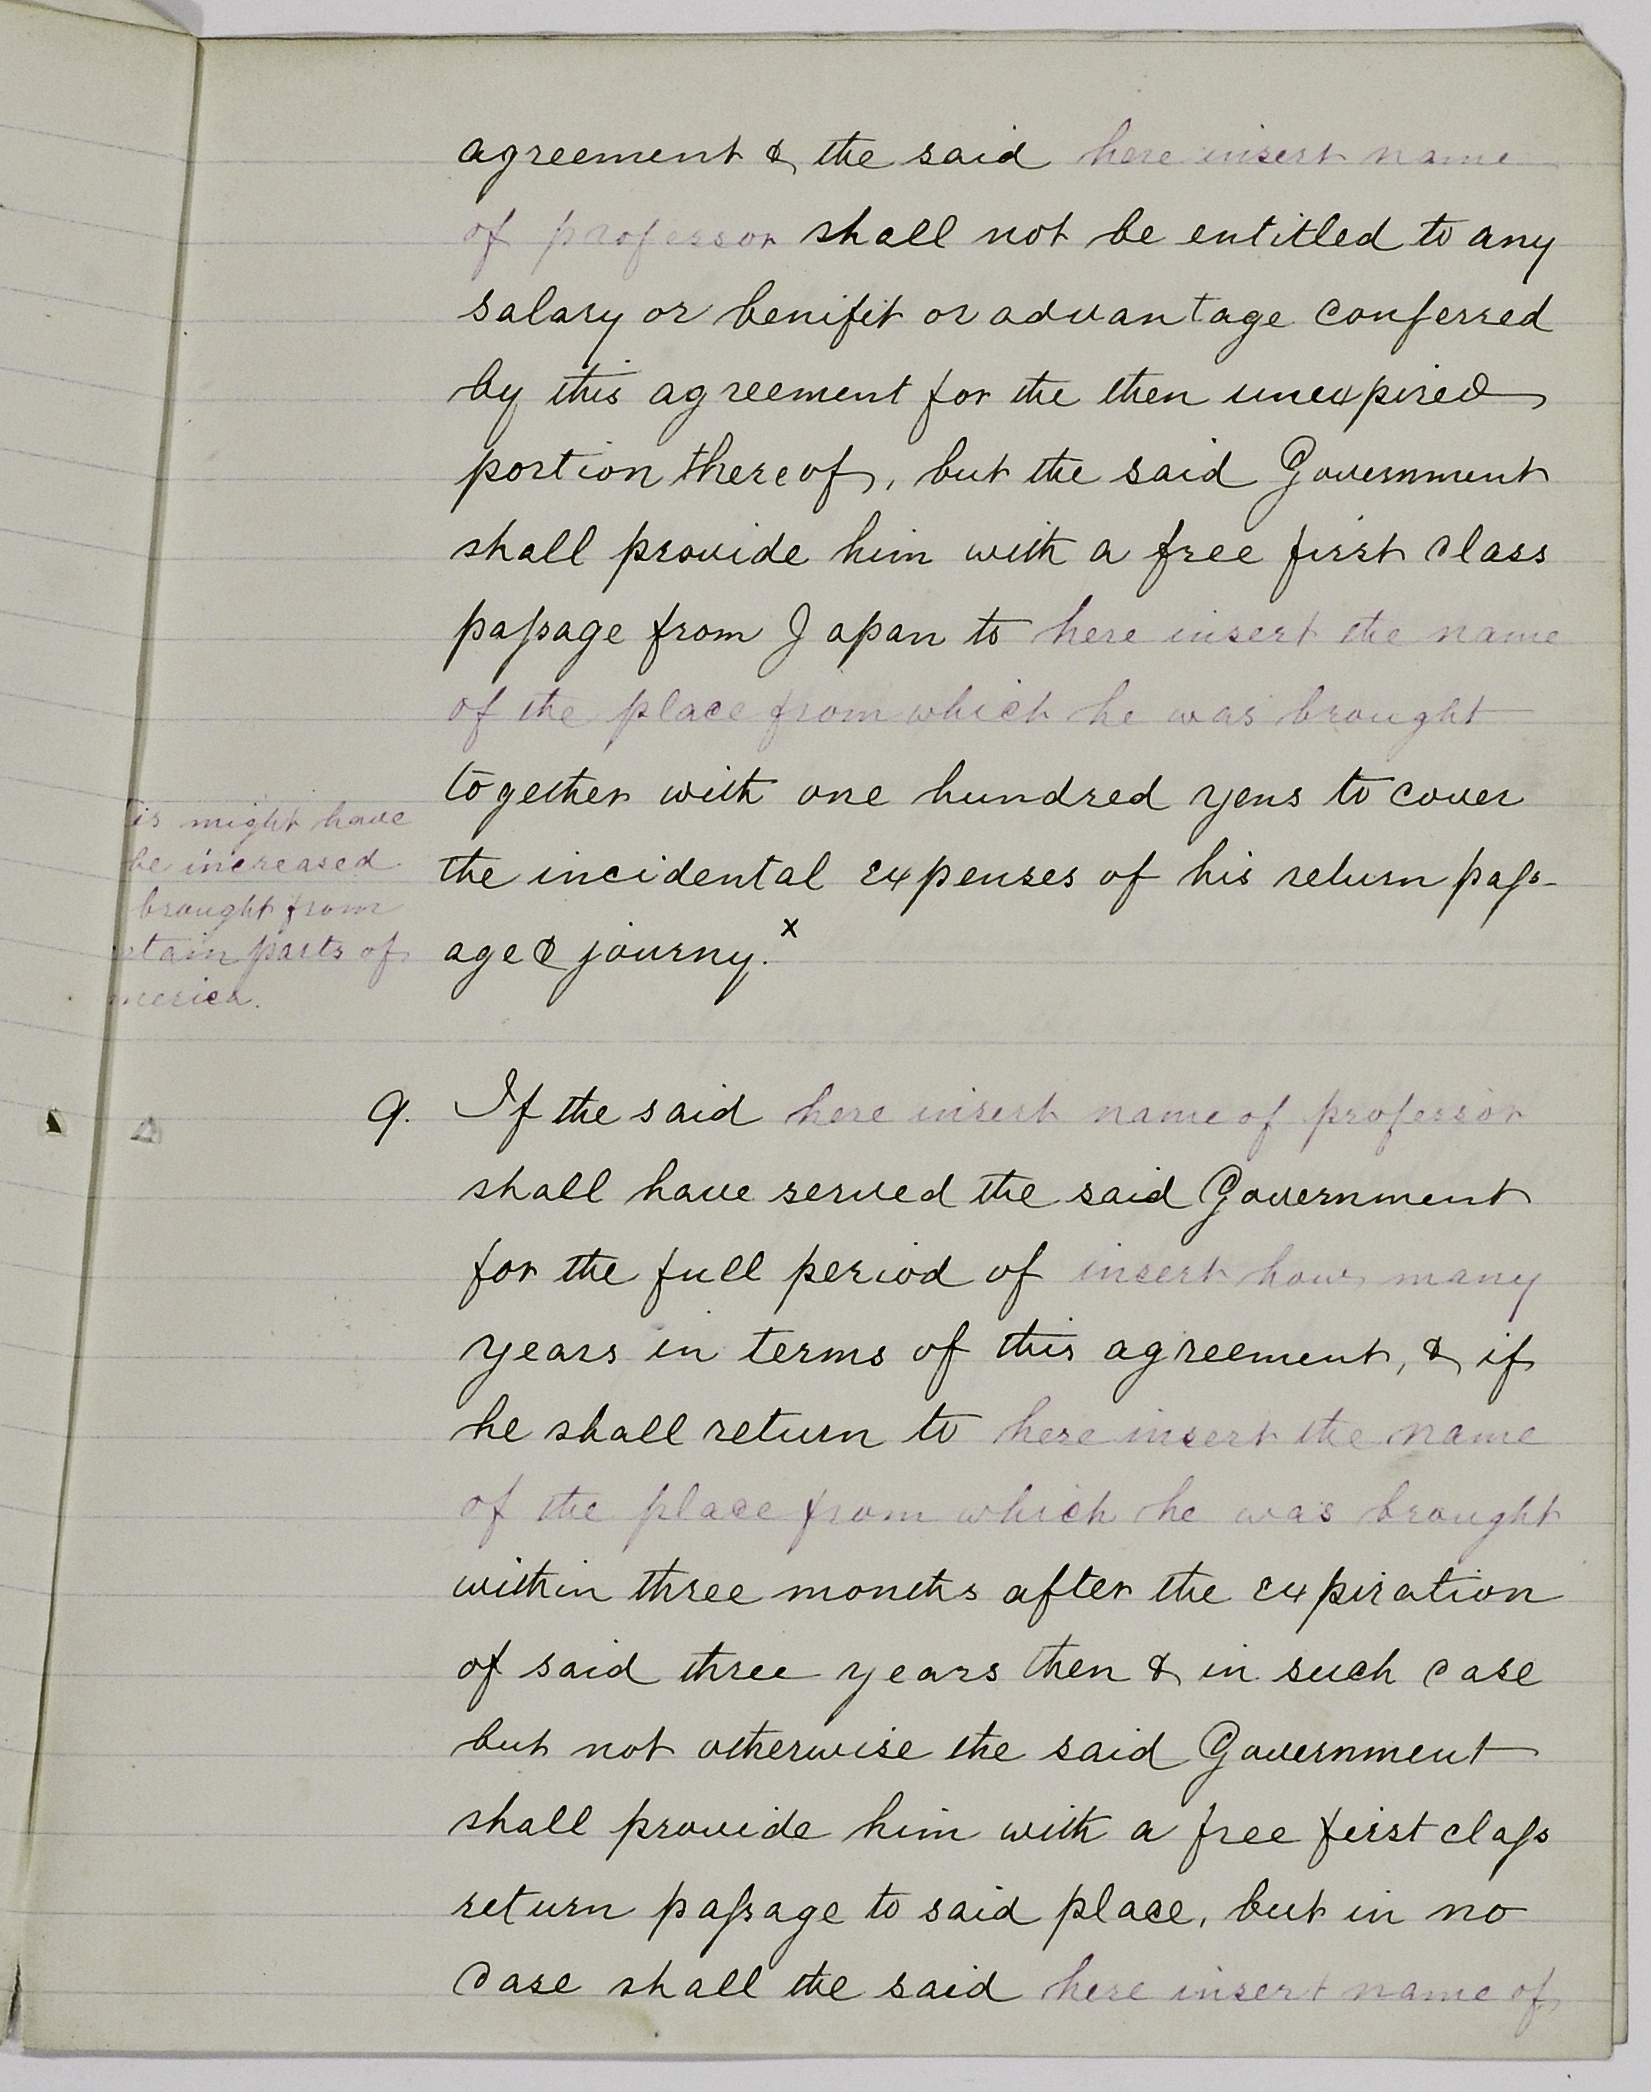 agreement & the said here insert name
of professor shall not be entitled to any
salary or benifit or advantage conferred
by this agreement for the then unexpired
portion thereof, but the said Government
shall provide him with a free first class
paſsage from Japan to here insert the name
of the place from which he was brought
together with one hundred yens to cover
the incidental expenses of his return paſs-
age & journy. x
is might have
be increased
brought from
tain parts of
merica.
9. If the said here insert name of professor
shall have served the said Government
for the full period of insert how many
years in terms of this agreement, & if
he shall return to here insert the name
of the place from which he was brought
within three months after the expiration
of said three years then & in such case
but not otherwise the said Government
shall provide him with a free first claſs
return paſsage to said place, but in no
case shall the said here insert name of